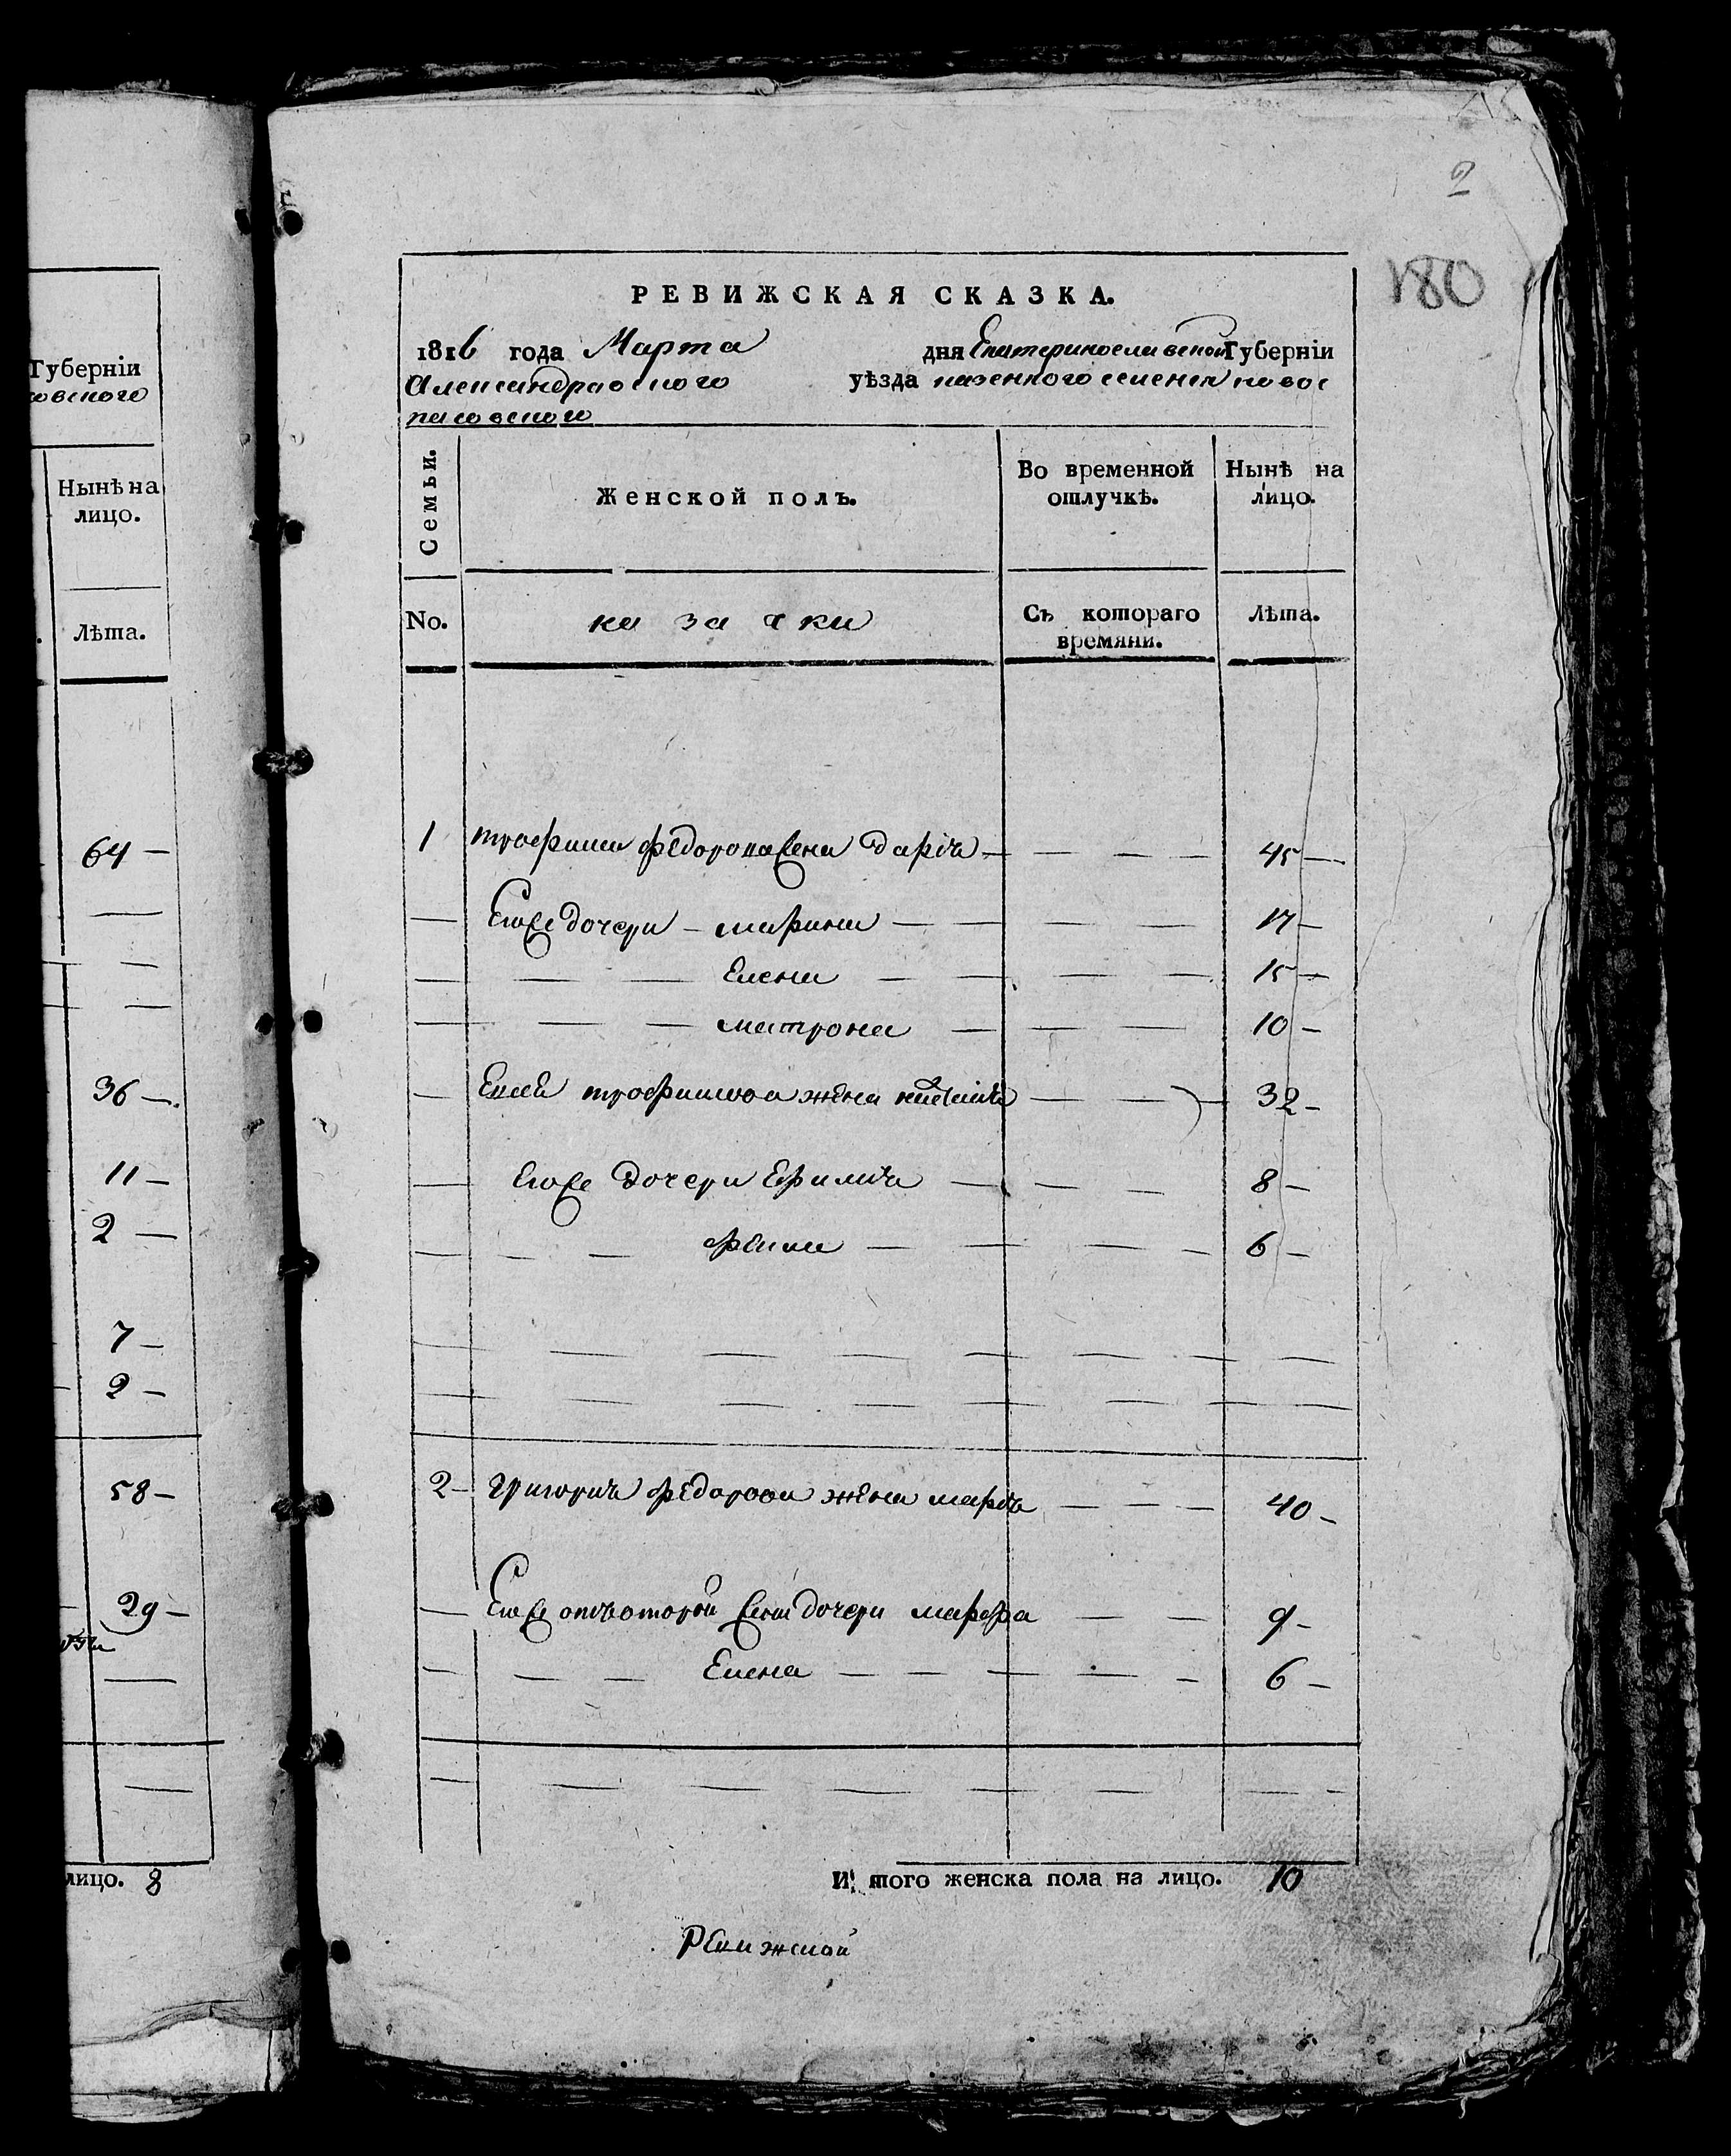 Губерніи
овского
Нынѣ на
лицо.
Лѣта.
64 —
36 —
11 —
2 —
7 —
2 —
58 —
29 —
лицо. 8
2
180
РЕВИЖСКАЯ СКАЗКА.
1816 года Марта дня Екатеринославской Губерніи
Александровского уѣзда казенного селения новос
пасовского
Семьи. Женской полъ. Во временной отлучкѣ. Нынѣ на лицо.
No. казачки Съ котораго времяни. Лѣта.
1 трофима федорова жена дарія — — — — 45 —
— Егоже дочери — марина — — — — — 17 —
— — — Елена — — — — — 15 —
— — — матрона — — — — 10 —
— Елисея трофимова жена — — — 32 —
— Егоже дочери Ефимія — — — — 8 —
— — — фекла — — — — — 6 —
2 — григория федорова жена марія — — — 40 —
— Егоже отъвторой жени дочери марфа — — 9 —
— — — Елена — — — — — — 6 —
И того женска пола на лицо. 10
Ревижской